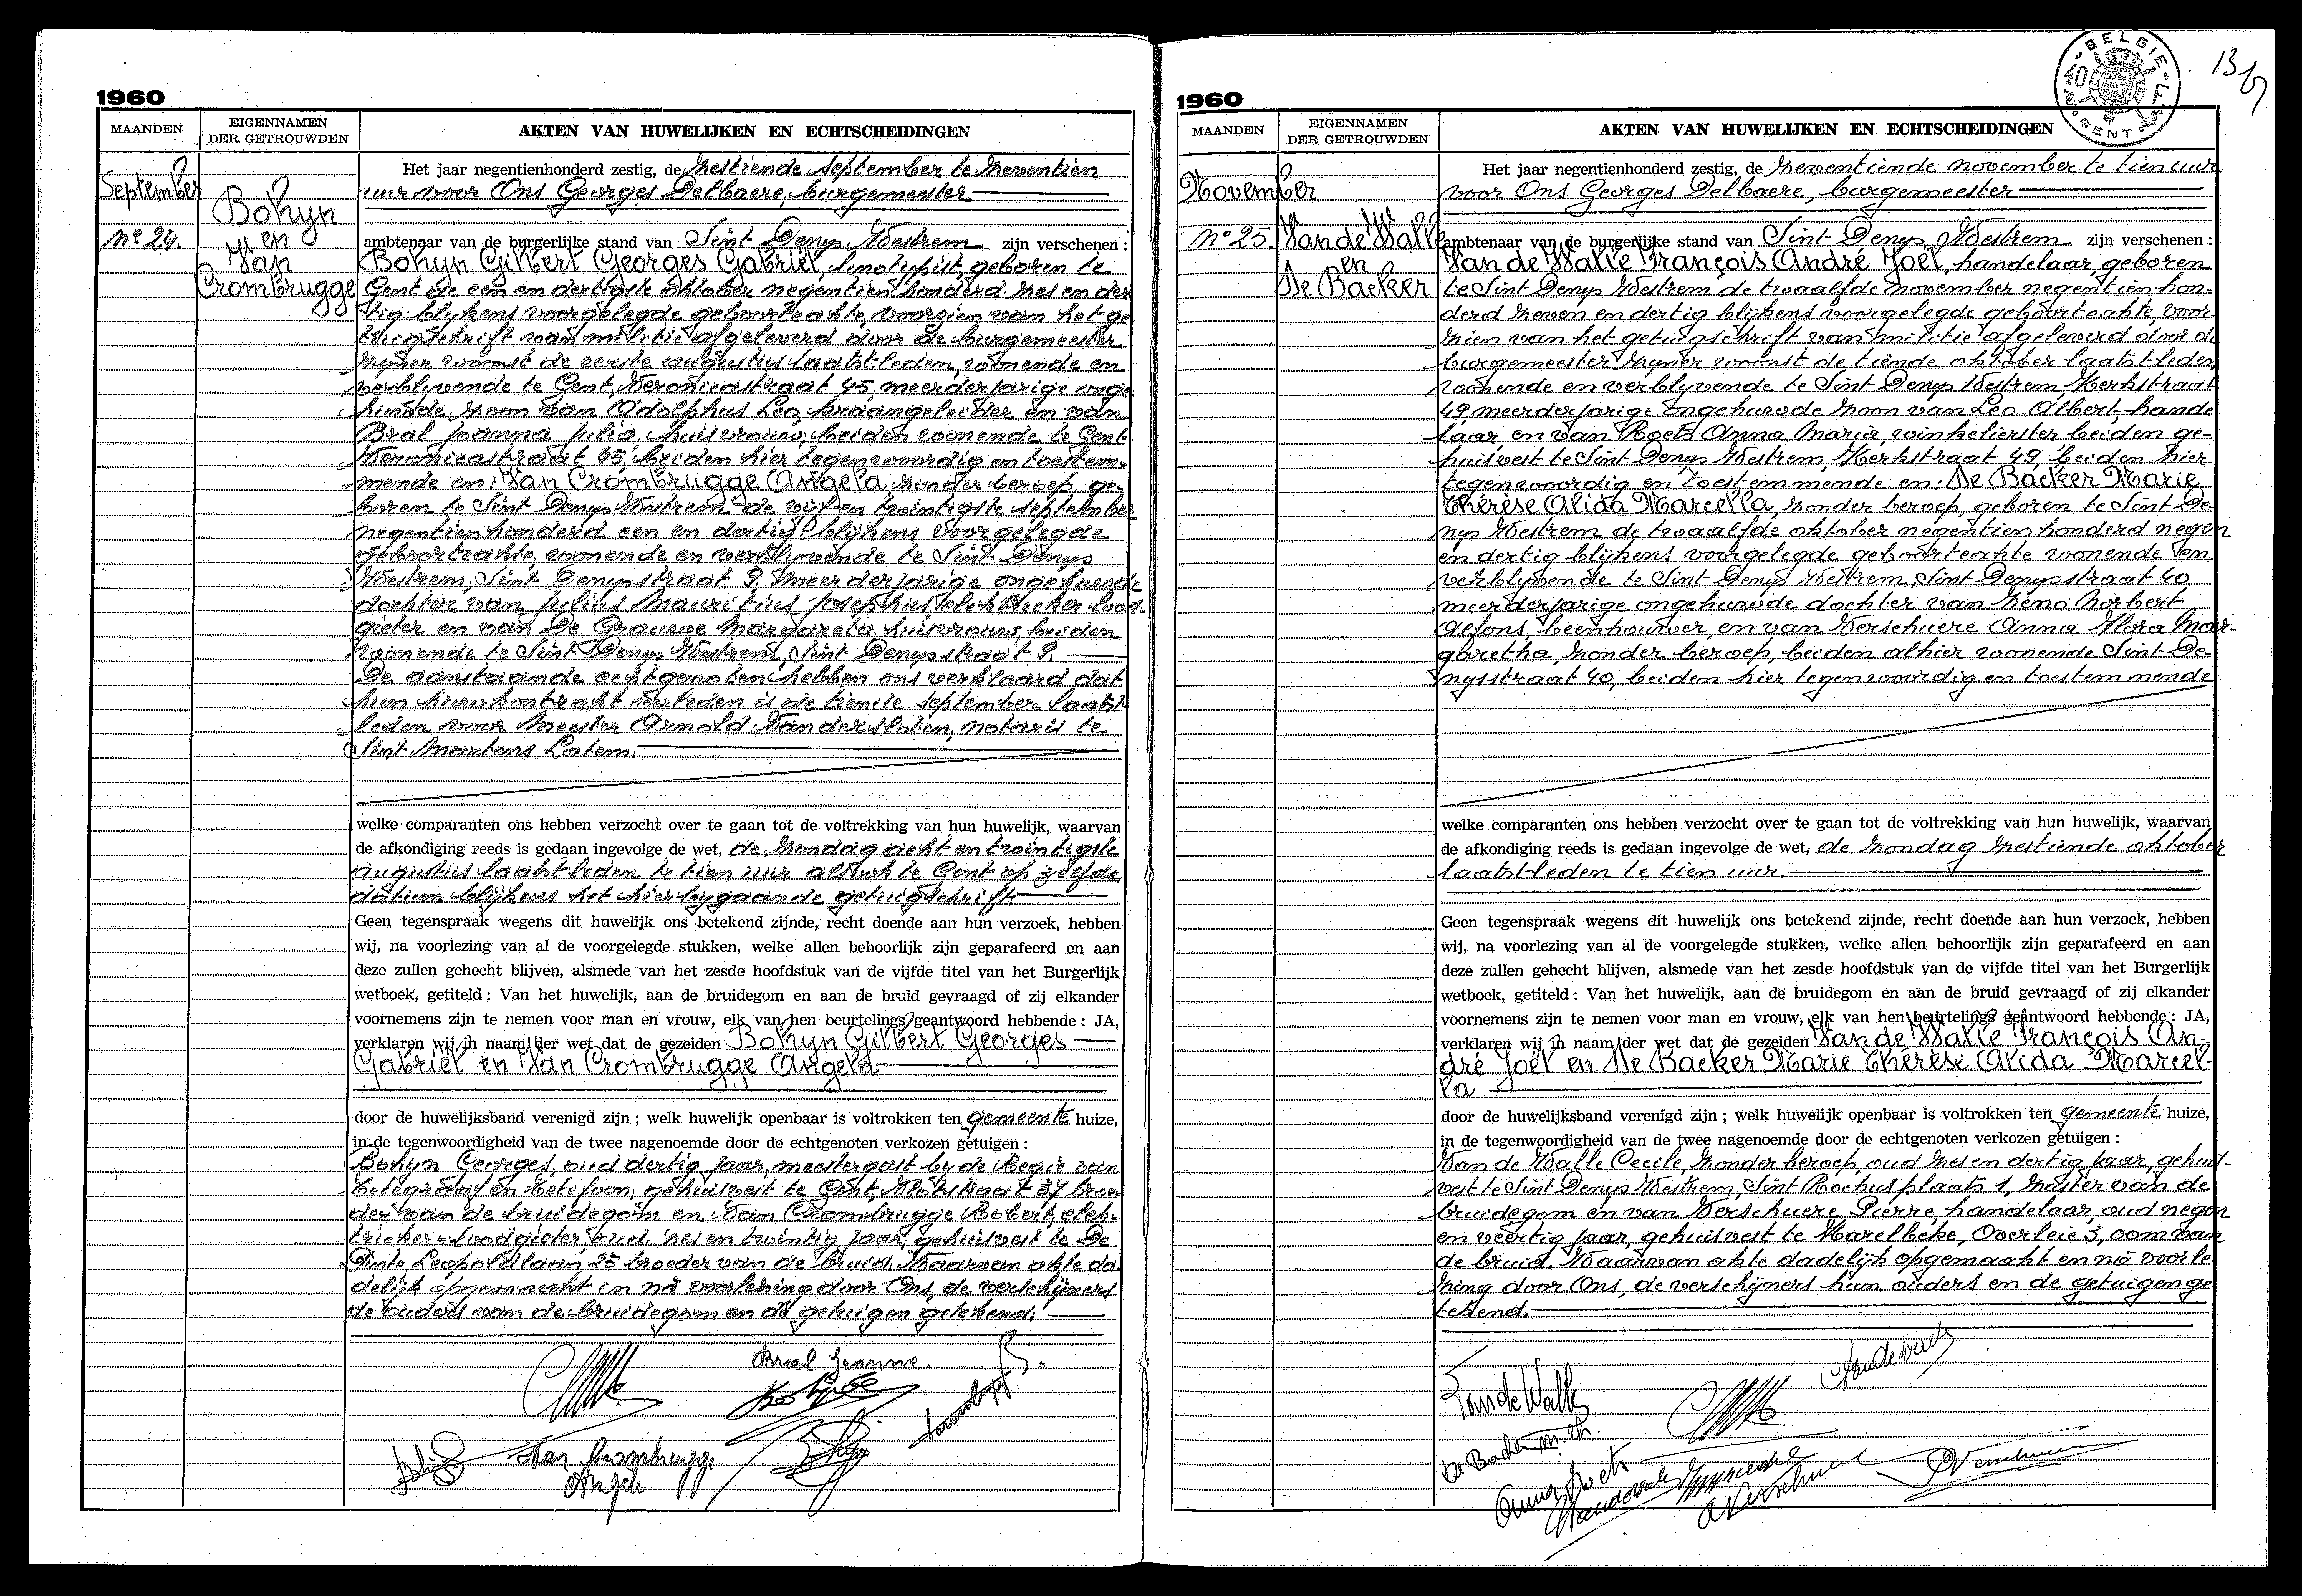 1960
MAANDEN
EIGENNAMEN
DER GETROUWDEN
AKTEN VAN HUWELIJKEN EN ECHTSCHEIDINGEN
September
No 24.
Bokyn
en
Van
Crombrugge
Het jaar negentienhonderd zestig, de zestiende september te zeventien
uur voor Ons Georges Delbaere, burgemeester
ambtenaar van de burgerlijke stand van Sint Denys Westrem zijn verschenen :
Bokyn Gilbert Georges Gabriël, linotypist, geboren te
Gent de een en dertigste oktober negentien honderd zes en der
tig blijkens voorgelegde geboorteakte, voorzien van het ge
tuigschrift van militie afgeleverd door de burgemeester
zijner woonst de eerste augustus laatstleden, wonende en
verblijvende te Gent, Veronicastraat 45, meerderjarige onge
huwde zoon van Adolphus Leo, kraangeleider en van
Bral Joanna Julia, huisvrouw, beiden wonende te Gent
Veronicastraat 45, beiden hier tegenwoordig en toestem-
mende en: Van Crombrugge Angela, zonder beroep, ge-
boren te Sint Denys Westrem de vijf en twintigste september
negentien honderd een en dertig blijkens voorgelegde
geboorteakte, wonende en verblijvende te Sint Denys
Westrem, Sint Denysstraat 9, meerderjarige ongehuwde
dochter van Julius Mauritius Josephus, elektrieker-lood-
gieter en van De Grauwe Margareta, huisvrouw, beiden
wonende te Sint Denys Westrem, Sint Denysstraat 9.
De aanstaande echtgenoten hebben ons verklaard dat
hun huwkontrakt verleden is de tiende september laatst
leden voor Meester Arnold Vandersloten, notaris te
Sint Martens Latem.
welke comparanten ons hebben verzocht over te gaan tot de voltrekking van hun huwelijk, waarvan
de afkondiging reeds is gedaan ingevolge de wet, de zondag acht en twintigste
augustus laatstleden te tien uur alsook te Gent op zelfde
datum blijkens het hierbygaande getuigschrift
Geen tegenspraak wegens dit huwelijk ons betekend zijnde, recht doende aan hun verzoek, hebben
wij, na voorlezing van al de voorgelegde stukken, welke allen behoorlijk zijn geparafeerd en aan
deze zullen gehecht blijven, alsmede van het zesde hoofdstuk van de vijfde titel van het Burgerlijk
wetboek, getiteld : Van het huwelijk, aan de bruidegom en aan de bruid gevraagd of zij elkander
voornemens zijn te nemen voor man en vrouw, elk van hen beurtelings geantwoord hebbende : JA,
verklaren wij in naam der wet dat de gezeiden Bokyn Gilbert Georges
Gabriël en Van Crombrugge Angela
door de huwelijksband verenigd zijn ; welk huwelijk openbaar is voltrokken ten gemeente huize,
in de tegenwoordigheid van de twee nagenoemde door de echtgenoten verkozen getuigen :
Bokyn Georges, oud dertig jaar, meestergast by de Regie van
telegraaf en telefoon, gehuisvest te Gent, 37 broe
der van de bruidegom en Van Crombrugge Robert, elek-
trieker-loodgieter, oud zes en twintig jaar, gehuisvest te De
Pinte Leopoldlaan, 25 broeder van de bruid. Waarvan akte da
delijk opgemaakt en na voorlezing door Ons, de verschijners
de ouders van de bruidegom en de getuigen getekend.
Bral Jeanne.
Van Crombrugge
Angela
1960
BELGIE
GENT
MAANDEN
EIGENNAMEN
DER GETROUWDEN
AKTEN VAN HUWELIJKEN EN ECHTSCHEIDINGEN
November
No 25.
Van de Walle
en
De Backer
Het jaar negentienhonderd zestig, de zeventiende november te tien uur
voor Ons Georges Delbaere, burgemeester
ambtenaar van de burgerlijke stand van Sint Denys Westrem zijn verschenen :
Van de Walle François André Joël, handelaar, geboren
te Sint Denys Westrem de twaalfde november negentien hon-
derd zeven en dertig blijkens voorgelegde geboorteakte, voor-
zien van het getuigschrift van militie afgeleverd door de
burgemeester zijner woonst de tiende oktober laatstleden,
wonende en verblyvende te Sint Denys Westrem, Kerkstraat
49, meerderjarige ongehuwde zoon van Leo Albert, hande
laar en van Roets Anna Maria, winkelierster beiden ge-
huisvest te Sint Denys Westrem, Kerkstraat 49, beiden hier
tegenwoordig en toestemmende en: De Backer Marie
Thérèse Alida Marcella, zonder beroep, geboren te Sint De-
nys Westrem de twaalfde oktober negentien honderd negen
en dertig blijkens voorgelegde geboorteakte wonende en
verblyvende te Sint Denys Westrem, Sint Denysstraat 40
meerderjarige ongehuwde dochter van Zeno Norbert
Alfons, beenhouwer, en van Verschuere Anna Flora Mar-
garetha, zonder beroep, beiden alhier wonende Sint De-
nysstraat 40, beiden hier tegenwoordig en toestemmende
welke comparanten ons hebben verzocht over te gaan tot de voltrekking van hun huwelijk, waarvan
de afkondiging reeds is gedaan ingevolge de wet, de zondag zestiende oktober
laatstleden te tien uur.
Geen tegenspraak wegens dit huwelijk ons betekend zijnde, recht doende aan hun verzoek, hebben
wij, na voorlezing van al de voorgelegde stukken, welke allen behoorlijk zijn geparafeerd en aan
deze zullen gehecht blijven, alsmede van het zesde hoofdstuk van de vijfde titel van het Burgerlijk
wetboek, getiteld : Van het huwelijk, aan de bruidegom en aan de bruid gevraagd of zij elkander
voornemens zijn te nemen voor man en vrouw, elk van hen beurtelings geantwoord hebbende : JA,
verklaren wij in naam der wet dat de gezeiden Van de Walle François An-
dré Joël en De Backer Marie Thérèse Alida Marcel-
la
door de huwelijksband verenigd zijn ; welk huwelijk openbaar is voltrokken ten gemeente huize,
in de tegenwoordigheid van de twee nagenoemde door de echtgenoten verkozen getuigen :
Van de Walle Cecile, zonder beroep, oud zes en dertig jaar, gehuis-
vest te Sint Denys Westrem, Sint Rochusplaats 1, zuster van de
bruidegom en van Verschuere Pierre, handelaar, oud negen
en veertig jaar, gehuisvest te Harelbeke, Overleie 3, oom van
de bruid. Waarvan akte dadelijk opgemaakt en na voorle
zing door Ons, de verschijners hun ouders en de getuigen ge
tekend.
Van de Walle
De Backer M. Th.
Anna Roets